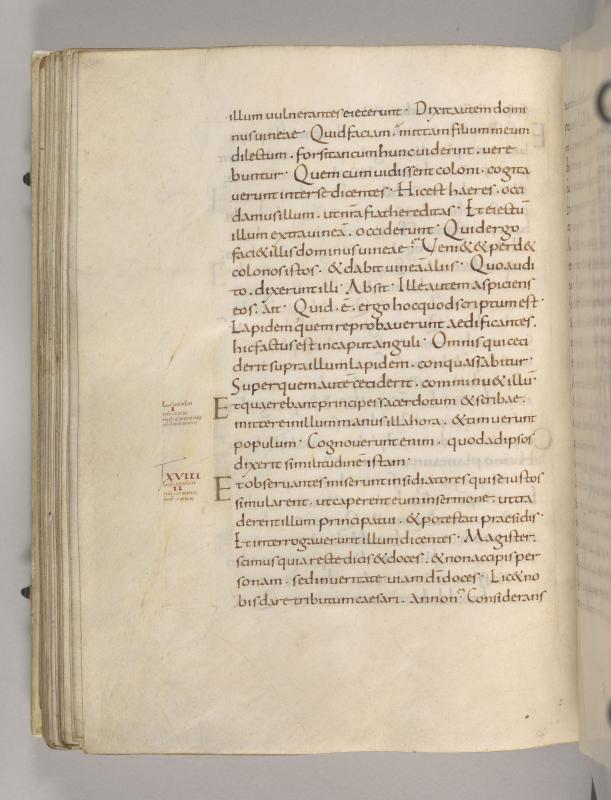 illum uulnerantes eiecerunt · Dixit autem domi
nus uineae · Quid faciam · mittam filium meum
dilectum · forsitan cum hunc uiderint · uere
buntur · Quem cum uidissent coloni · cogita
uerunt inter se dicentes · Hic est haeres · occi
damus illum · ut nr̄a fiat hereditas · Et eiectū
illum extra uineā · occiderunt · Quid ergo
faci& illis dominus uineae · Ueni& & perd&
colonos istos · & dabit uineā aliis · Quo audi
to · dixerunt illi · Absit · Ille autem aspiciens
eos · ait · Quid · ē · ergo hoc quod scriptum est ·
Lapidem quem reprobauerunt aedificantes ·
hic factus est in caput anguli · Omnis qui ceci
derit supra illum lapidem · conquassabitur ·
Super quem autē ceciderit · comminu& illū ·
Et quaerebant principes sacerdotum & scribae ·
mittere in illum manus illa hora · & timuerunt
populum · Cognouerunt enim · quod ad ipsos
dixerit similitudinē istam ·
XVIII
Et obseruantes miserunt insidiatores qui se iustos
simularent · ut caperent eum in sermone · ut tra
derent illum principatui · & potestati praesidis ·
Et interrogauerunt illum dicentes · Magister ·
scimus quia recte dicis & doces · & non accipis per
sonam · sed in ueritate uiam dī doces · Lic& no
bis dare tributum caesari · an non · Considerans